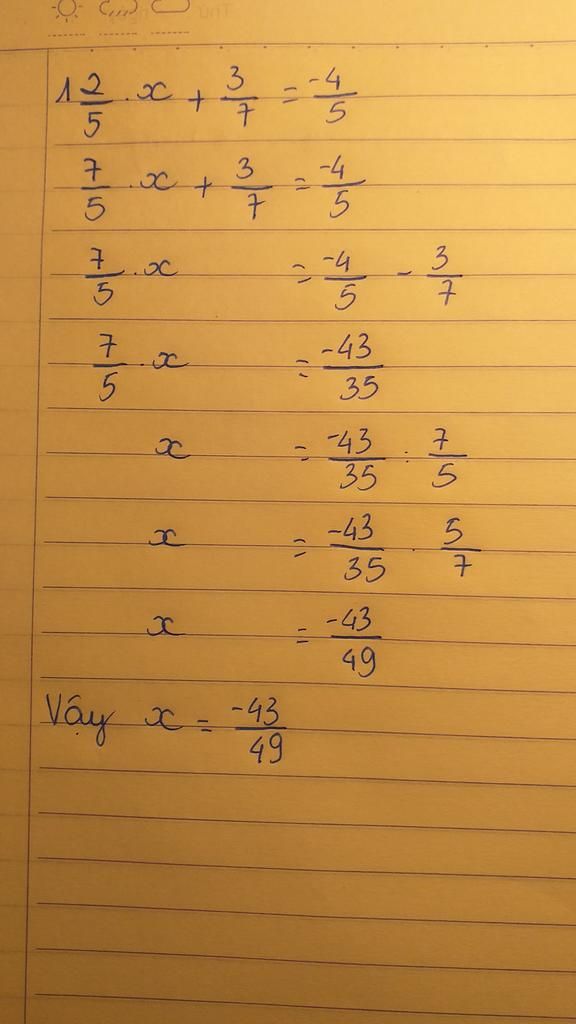 1 2/5 . x + 3/7 = -4/5
7/5 . x + 3/7 = -4/5
7/5 . x = -4/5 - 3/7
7/5 . x = -43/35
x = -43/35 : 7/5
x = -43/35 . 5/7
x = -43/49
Vậy x = -43/49